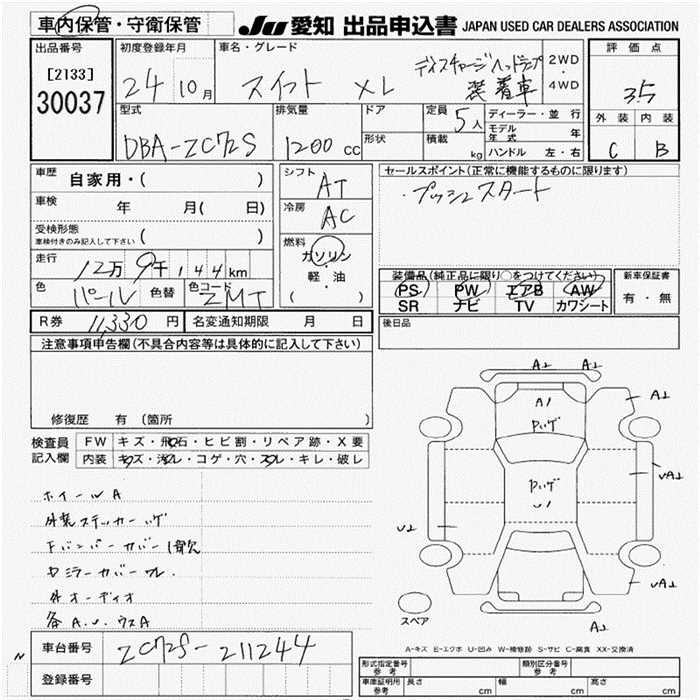 車内保管・守衛保管
JU 愛知 出品申込書 JAPAN USED CAR DEALERS ASSOCIATION
出品番号
[2133]
30037
初度登録年月
24 10月
車名・グレード
スイフト XL
ディスチャージヘッドランプ
装着車
2WD
・
4WD
評価点
3.5
外装 内装
C B
型式
DBA-ZC72S
排気量
1200 cc
ドア
形状
定員 5人
積載 kg
ディーラー・並行
モデル年式 年
ハンドル 左・右
車歴 自家用・( )
車検 年 月( 日)
受検形態
車検付きのみ記入して下さい ( )
走行 12万9千144km
色 パール 色替 色コード ZMT
シフト AT
冷房 AC
燃料
ガソリン
・
軽・油
( )
セールスポイント(正常に機能するものに限ります)
・プッシュスタート
装備品(純正品に限り○をつけてください)
PS PW エアB AW
SR ナビ TV カワシート
新車保証書
有・無
R券 11,330円 名変通知期限 月 日
後日品
注意事項申告欄(不具合内容等は具体的に記入して下さい)
修復歴 有 (箇所
検査員
記入欄
FW キズ・飛石・ヒビ割・リペア跡・X要
内装 キズ・汚レ・コゲ・穴・スレ・キレ・破レ
ホイールA
外装ステッカーハゲ
Fバンパーカバー1欠
外オーディオ
各A.U.ウスA
A2 A2
A1 A2
Pハゲ
Pハゲ
U1
U2
UA2
UA2
A2
スペア
A-キズ E-エクボ U-凹み W-補修跡 S-サビ C-腐食 XX-交換済
N
車台番号 ZC72S-211244
登録番号
形式指定番号
参考
類別区分番号
参考
車庫証明用
参考
長さ cm 幅 cm 高さ cm